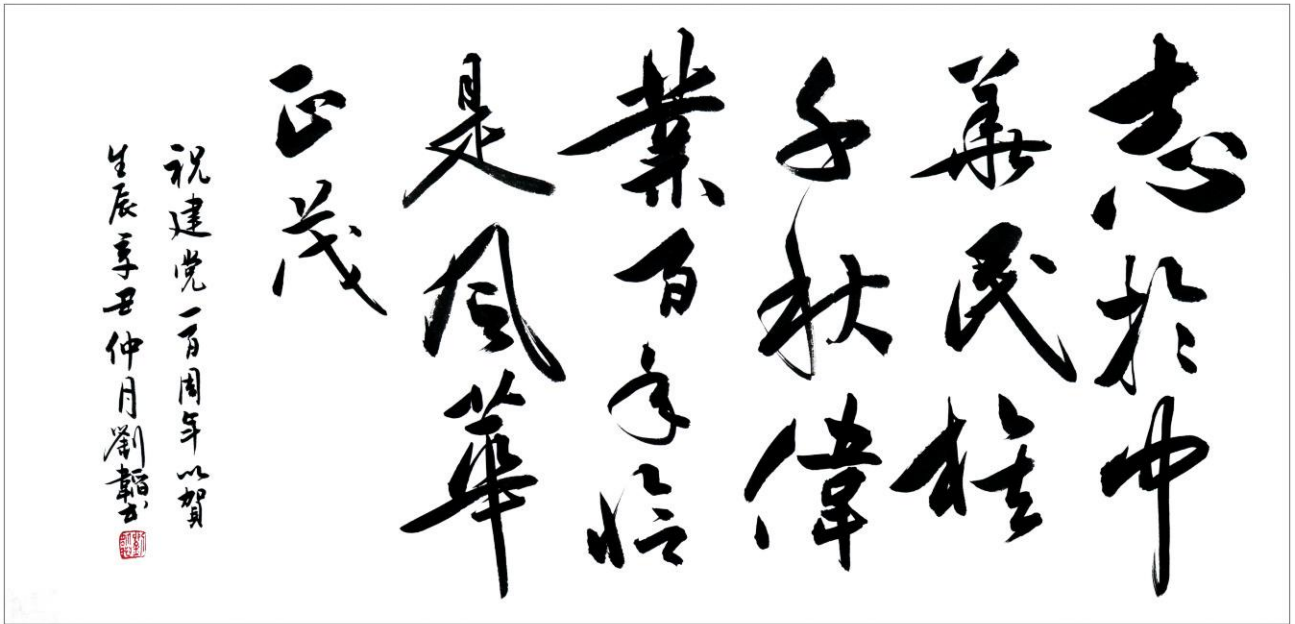 志於中
華民族
千秋偉
業百年恰
是風華
正茂
祝建党一百周年以賀
生辰辛丑仲月劉韜书